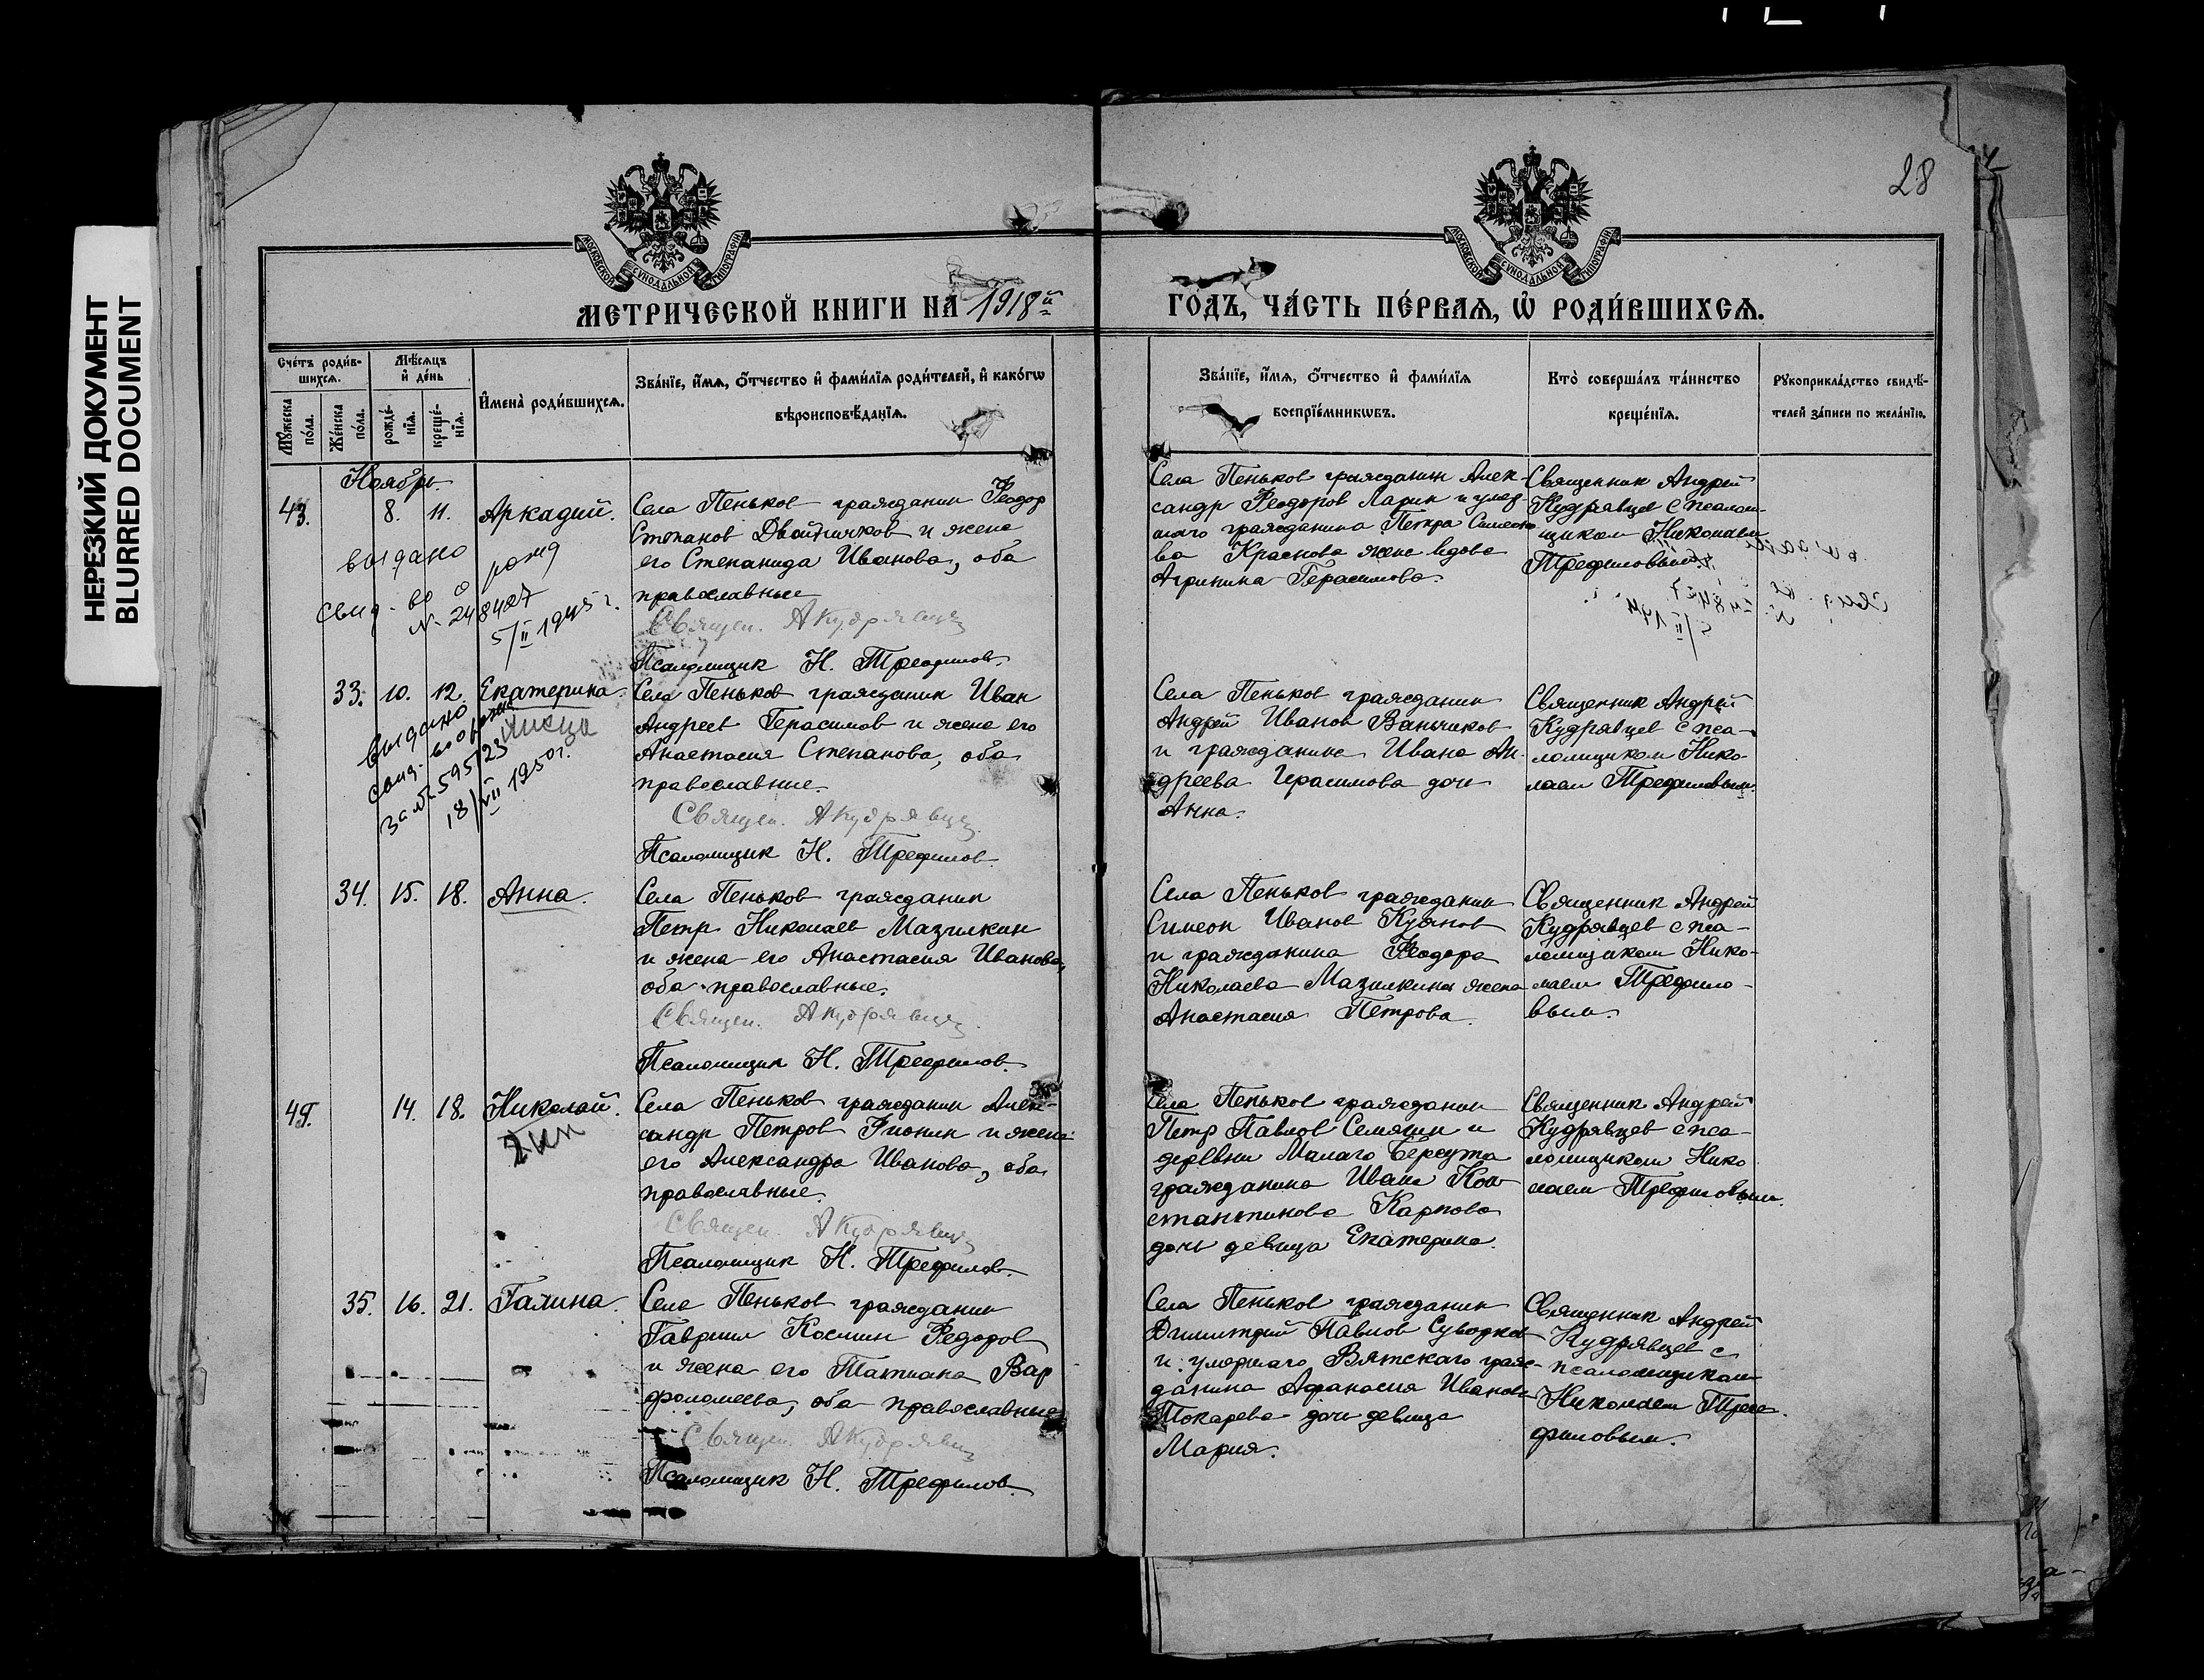 НЕРЕЗКИЙ ДОКУМЕНТ
BLURRED DOCUMENT
28
МОСКОВСКОЙ СѴНОДАЛЬНОЙ ТИПОГРАФІИ
МОСКОВСКОЙ СѴНОДАЛЬНОЙ ТИПОГРАФІИ
МЕТРИЧЕСКОЙ КНИГИ НА 1918й
ГОДЪ, ЧАСТЬ ПЕРВАЯ, Ѡ РОДИВШИХСЯ.
Счетъ родив-
шихся.
Мужеска
пола.
Женска
пола.
Мѣсяцъ
и день
рожде-
нїя.
креще-
нїя.
Имена родившихся.
Званїе, имя, отчество и фамилїя родителей, и какогѡ
вѣроисповѣданїя.
Званїе, имя, отчество и фамилїя
воспрїемникѡвъ.
Кто совершалъ таинство
крещенїя.
Рукоприкладство свидѣ-
телей записи по желанїю.
Ноябрь.
43. 8. 11. Аркадий.
Села Пеньков гражданин Феодор
Степанов Двойничков и жена
его Степанида Иванова, оба
православные
Священ. А Кудрявцев
Псаломщик Н. Трефилов.
выдано
свид-во о рожд
N 248427
5/II 1945 г.
Села Пеньков гражданин Алек-
сандр Феодоров Ларин и умер
шаго гражданина Петра Симеоно
ва Краснова жена вдова
Агрипина Герасимова.
Священник Андрей
Кудрявцев с псалом-
щиком Николаем
Трефиловым.
33. 10. 12. Екатерина.
выдано
свид-во о рожд
за № 595123
18/VII 1950 г.
Села Пеньков гражданин Иван
Андреев Герасимов и жена его
Анастасия Степанова, оба
православные.
Священ. А Кудрявцев
Псаломщик Н. Трефилов.
Села Пеньков гражданин
Андрей Иванов Ванчиков
и гражданина Ивана Ан-
дреева Герасимова дочь
Анна.
Священник Андрей
Кудрявцев с пса-
ломщиком Нико-
лаем Трефиловым.
34. 15. 18. Анна.
Села Пеньков гражданин
Петр Николаев Мазилкин
и жена его Анастасия Иванова,
оба православные.
Священ. А Кудрявцев
Псаломщик Н. Трефилов.
Села Пеньков гражданин
Симеон Иванов Куянов
и гражданина Феодора
Николаева Мазилкина жена
Анастасия Петрова.
Священник Андрей
Кудрявцев с пса-
ломщиком Нико-
лаем Трефило-
вым.
14. 18. Николай.
Села Пеньков гражданин Алек-
сандр Петров Фионин и жена
его Александра Иванова, оба
православные.
Священ. А Кудрявцев
Псаломщик Н. Трефилов.
Села Пеньков гражданин
Петр Павлов Семягин и
деревни Малаго Берсута
гражданина Ивана Кон
стантинова Карпова
дочь девица Екатерина.
Священник Андрей
Кудрявцев с пса-
ломщиком Нико
лаем Трефиловым.
35. 16. 21. Галина.
Села Пеньков гражданин
Гавриил Космин Федоров
и жена его Татиана Вар
фоломеева, оба православные
Священ. А Кудрявцев
Псаломщик Н. Трефилов.
Села Пеньков гражданин
Димитрий Павлов Суворков
и умершаго Вятскаго граж-
данина Афанасия Иванова
Токарева дочь девица
Мария.
Священник Андрей
Кудрявцев с
псаломщиком
Николаем Тре-
филовым.